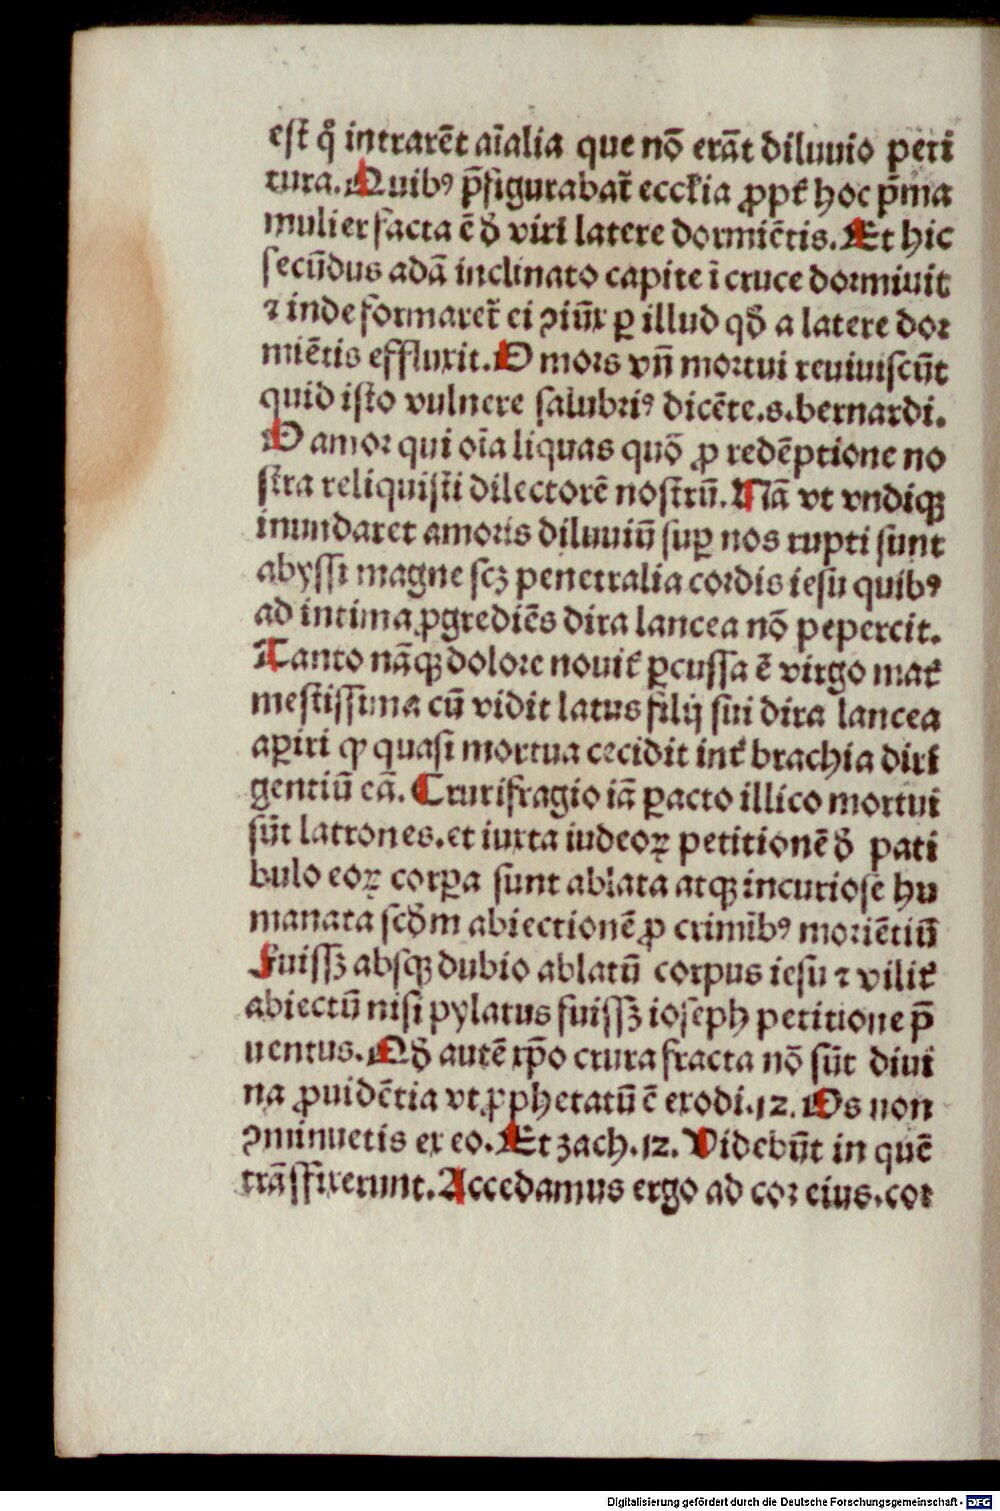 est q̊ intrarēt aīalia que nō erāt diluuio peri
tura. Quibꝰ p̄figurabat̄ eccłia ꝓpt̄ hoc p̄ma
mulier facta ē ð viri latere dormiētis. Et hic
secūdus adā inclinato capite ī cruce dormiuit
⁊ inde formaret̄ ei ꝯiūx ꝑ illud qð a latere dor
miētis effluxit. O mors vn̄ mortui reuiuiscūt
quid isto vulnere salubriꝰ dicēte.s.bernardi.
O amor qui oīa liquas quō ꝓ redēptione no
stra reliquisti dilectorē nostrū. Nā vt vndiqꝫ
inundaret amoris diluuiū suꝑ nos rupti sunt
abyssi magne scꝫ penetralia cordis iesu quibꝰ
ad intima ꝓgrediēs dira lancea nō pepercit.
Tanto nāqꝫ dolore nouit̄ ꝑcussa ē virgo mat̄
mestissima cū vidit latus filij sui dira lancea
aꝑiri ꝙ quasi mortua cecidit int̄ brachia diri
gentiū eā. Crurifragio iā ꝑacto illico mortui
sūt latrones.et iuxta iudeoꝝ petitionē ð pati
bulo eoꝝ corꝑa sunt ablata atqꝫ incuriose hu
manata scðm abiectionē ꝓ crimībꝰ moriētiū
Fuissꝫ absqꝫ dubio ablatū corpus iesu ⁊ vilit̄
abiectū nisi pylatus fuissꝫ ioseph petitione p̄
uentus. Qð autē xp̄o crura fracta nō sūt diui
na ꝓuidētia vt ꝓphetatū ē exodi.12. Os non
ꝯminuetis ex eo. Et zach.12. Videbūt in quē
trāsfixerunt. Accedamus ergo ad cor eius.cor
Digitalisierung gefördert durch die Deutsche Forschungsgemeinschaft - DFG